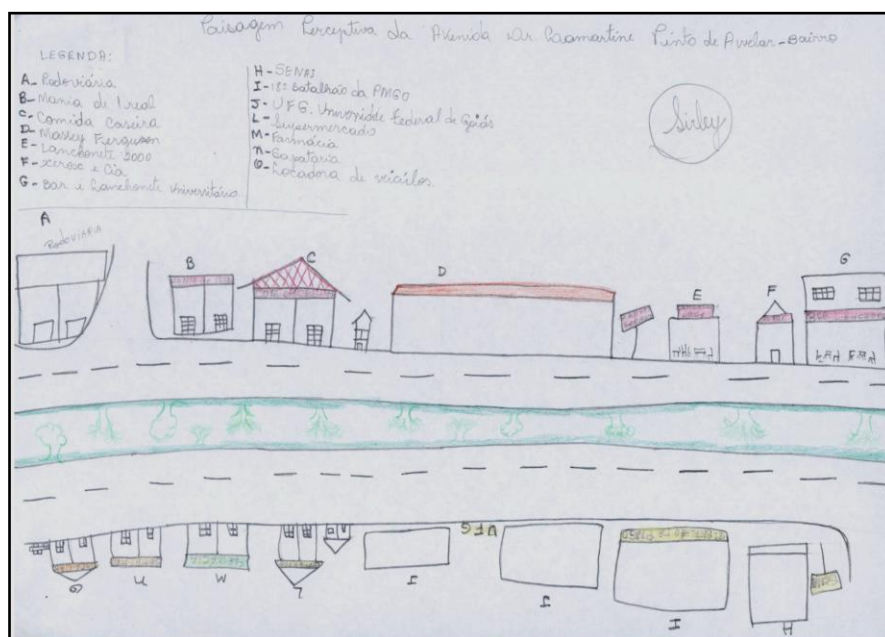 Paisagem Perceptiva da Avenida Dr. Lamartine Pinto de Avelar - Bairro
LEGENDA:
A - Rodoviária
B - Mania de 1 real
C - Comida Caseira
D - Massey Ferguson
E - Lanchonete 2000
F - Xerox e Cia
G - Bar e Lanchonete Universitário
H - SENAI
I - 18º Batalhão da PMGO
J - UFG. Universidade Federal de Goiás
L - Supermercado
M - Farmácia
N - Sapataria
O - Locadora de veículos.
Sirley
A
RODOVIARIA
B
C
D
E
F
G
UFG
O
N
M
L
J
J
I
H